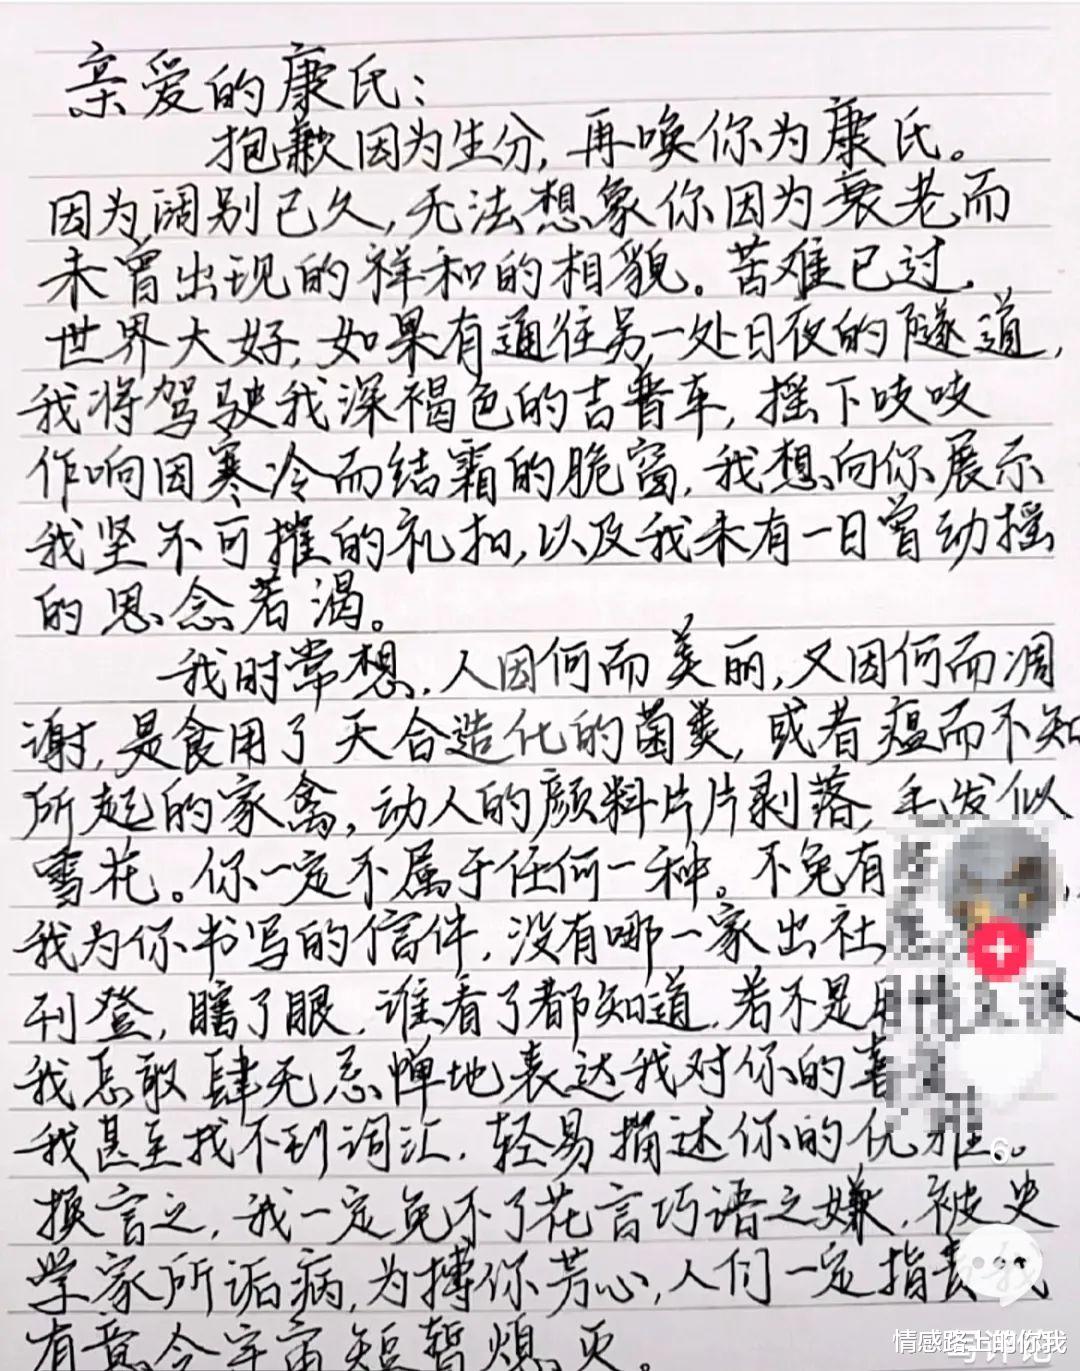 亲爱的康氏：
抱歉因为生分，再唤你为康氏。
因为阔别已久，无法想象你因为衰老而
未曾出现的祥和的相貌。苦难已过，
世界大好，如果有通往另一处日夜的隧道，
我将驾驶我深褐色的吉普车，摇下吱吱
作响因寒冷而结霜的脆窗，我想向你展示
我坚不可摧的礼拍，以及我未有一日曾动摇
的思念若渴。
我时常想，人因何而美丽，又因何而凋
谢，是食用了天合造化的菌类，或者瘟而不知
所起的家禽，动人的颜料片片剥落，毛发似
雪花。你一定不属于任何一种。不免有
我为你书写的信件，没有哪一家出社
刊登，瞎了眼，谁看了都知道，若不是用情
我怎敢肆无忌惮地表达我对你的喜
我甚至找不到词汇，轻易描述你的优雅。
6
换言之，我一定免不了花言巧语之嫌，被史
学家所诟病，为搏你芳心，人们一定指责我
有意令宇宙短暂熄灭。
情感路上的你我